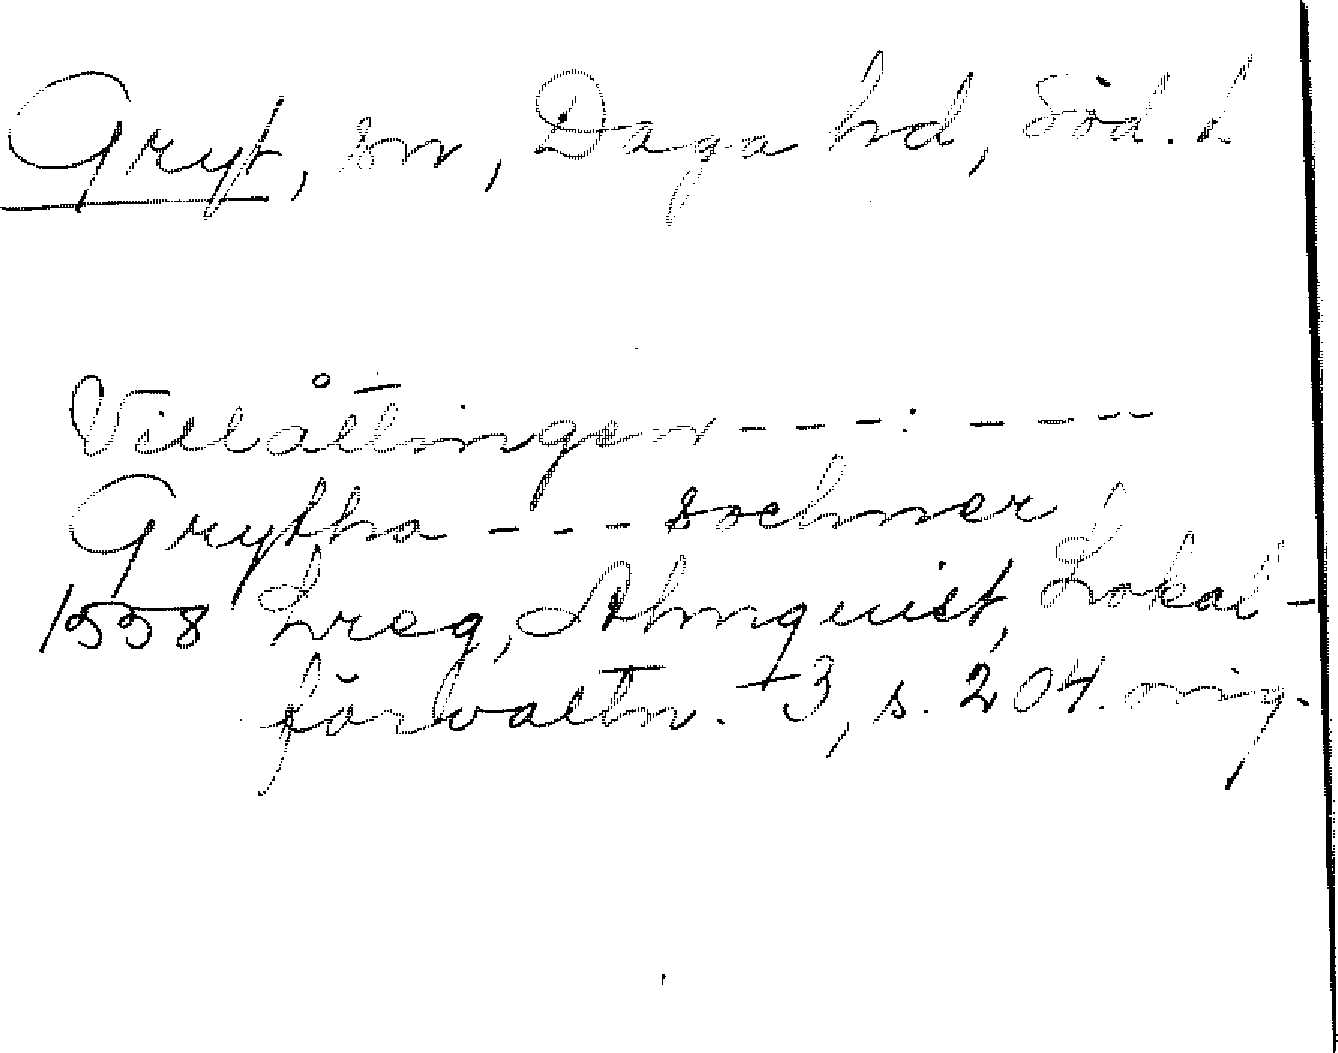 Gryt, sn, Daga hd, Söd. l
Villåttingen - - - : - - - -
Gryttha - - - sochner
1558 Lreg, Almquist, Lokal-
förvaltn. 3, s. 204. orig.